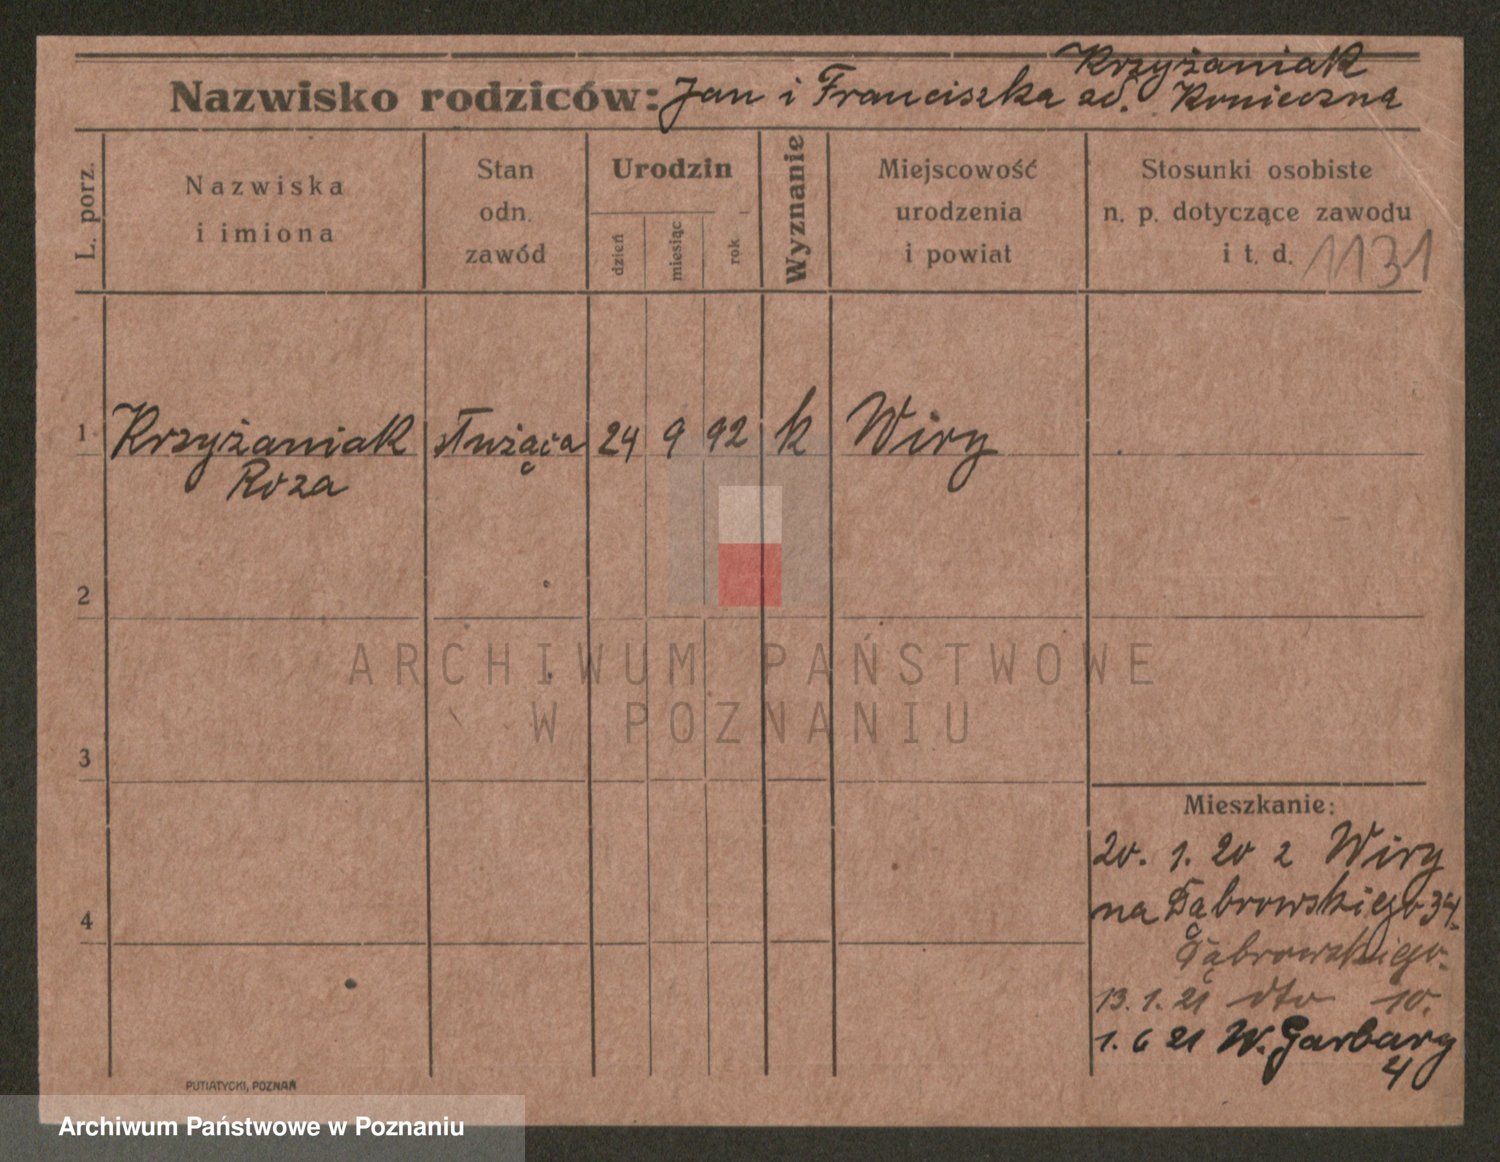 Krzyżaniak
Nazwisko rodziców: Jan i Franciszka zd. Konieczna
L. porz.
Nazwiska
i imiona
Stan
odn.
zawód
Urodzin
dzień
miesiąc
rok
Wyznanie
Miejscowość
urodzenia
i powiat
Stosunki osobiste
n. p. dotyczące zawodu
i t. d. 1131
1 Krzyżaniak służąca 24 9 92 k Wiry
Roza
2
ARCHIWUM PAŃSTWOWE
W POZNANIU
3
Mieszkanie:
20. 1. 20 z Wiry
na Dąbrowskiego 34.
4
Dąbrowskiego.
13. 1. 21 dto 10.
1. 6 21 W. Garbary
4
PUTIATYCKI, POZNAŃ
Archiwum Państwowe w Poznaniu